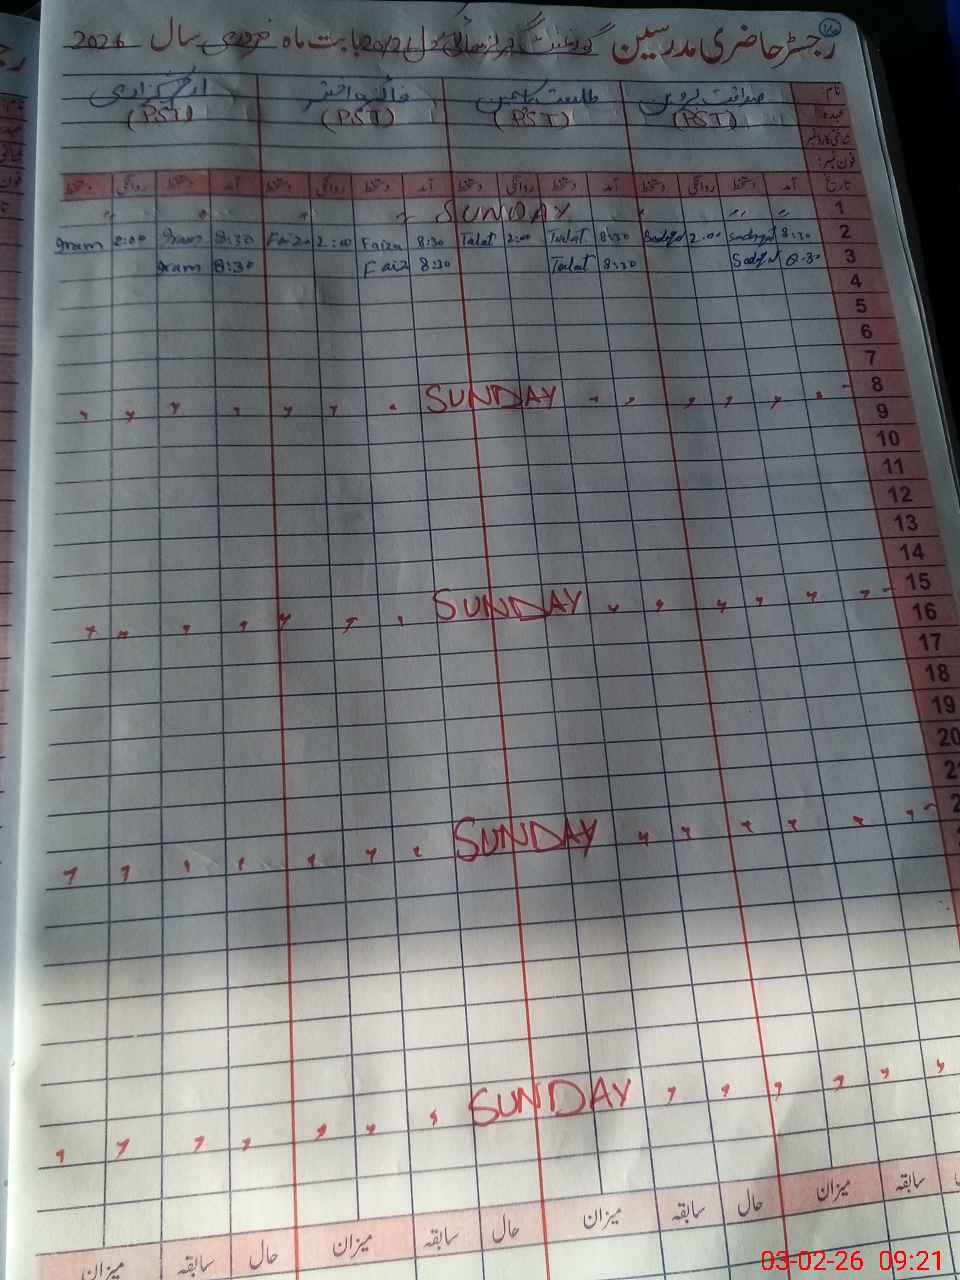 رجسٹر حاضری مدرسین گورنمنٹ گرلز ہائی سکول بابت ماہ فروری سال 2026
نام: صداقت پروین طلعت یاسمین فائزہ اختر
عہدہ: (PST) (PST) (PST) (PST)
شناختی کارڈ نمبر
فون نمبر:
تاریخ آمد دستخط روانگی دستخط آمد دستخط روانگی دستخط آمد دستخط روانگی دستخط آمد دستخط روانگی دستخط
1 SUNDAY
2 8:30 2:00 8:30 Talat 2:00 Talat 8:30 Faiza 2:00 Faiza 8:30 2:00
3 8:30 8:30 Talat 8:30 Faiz 8:30
4
5
6
7
8 SUNDAY
9
10
11
12
13
14
15 SUNDAY
16
17
18
19
20
SUNDAY
SUNDAY
سابقہ میزان حال سابقہ میزان حال سابقہ میزان حال سابقہ میزان
03-02-26 09:21